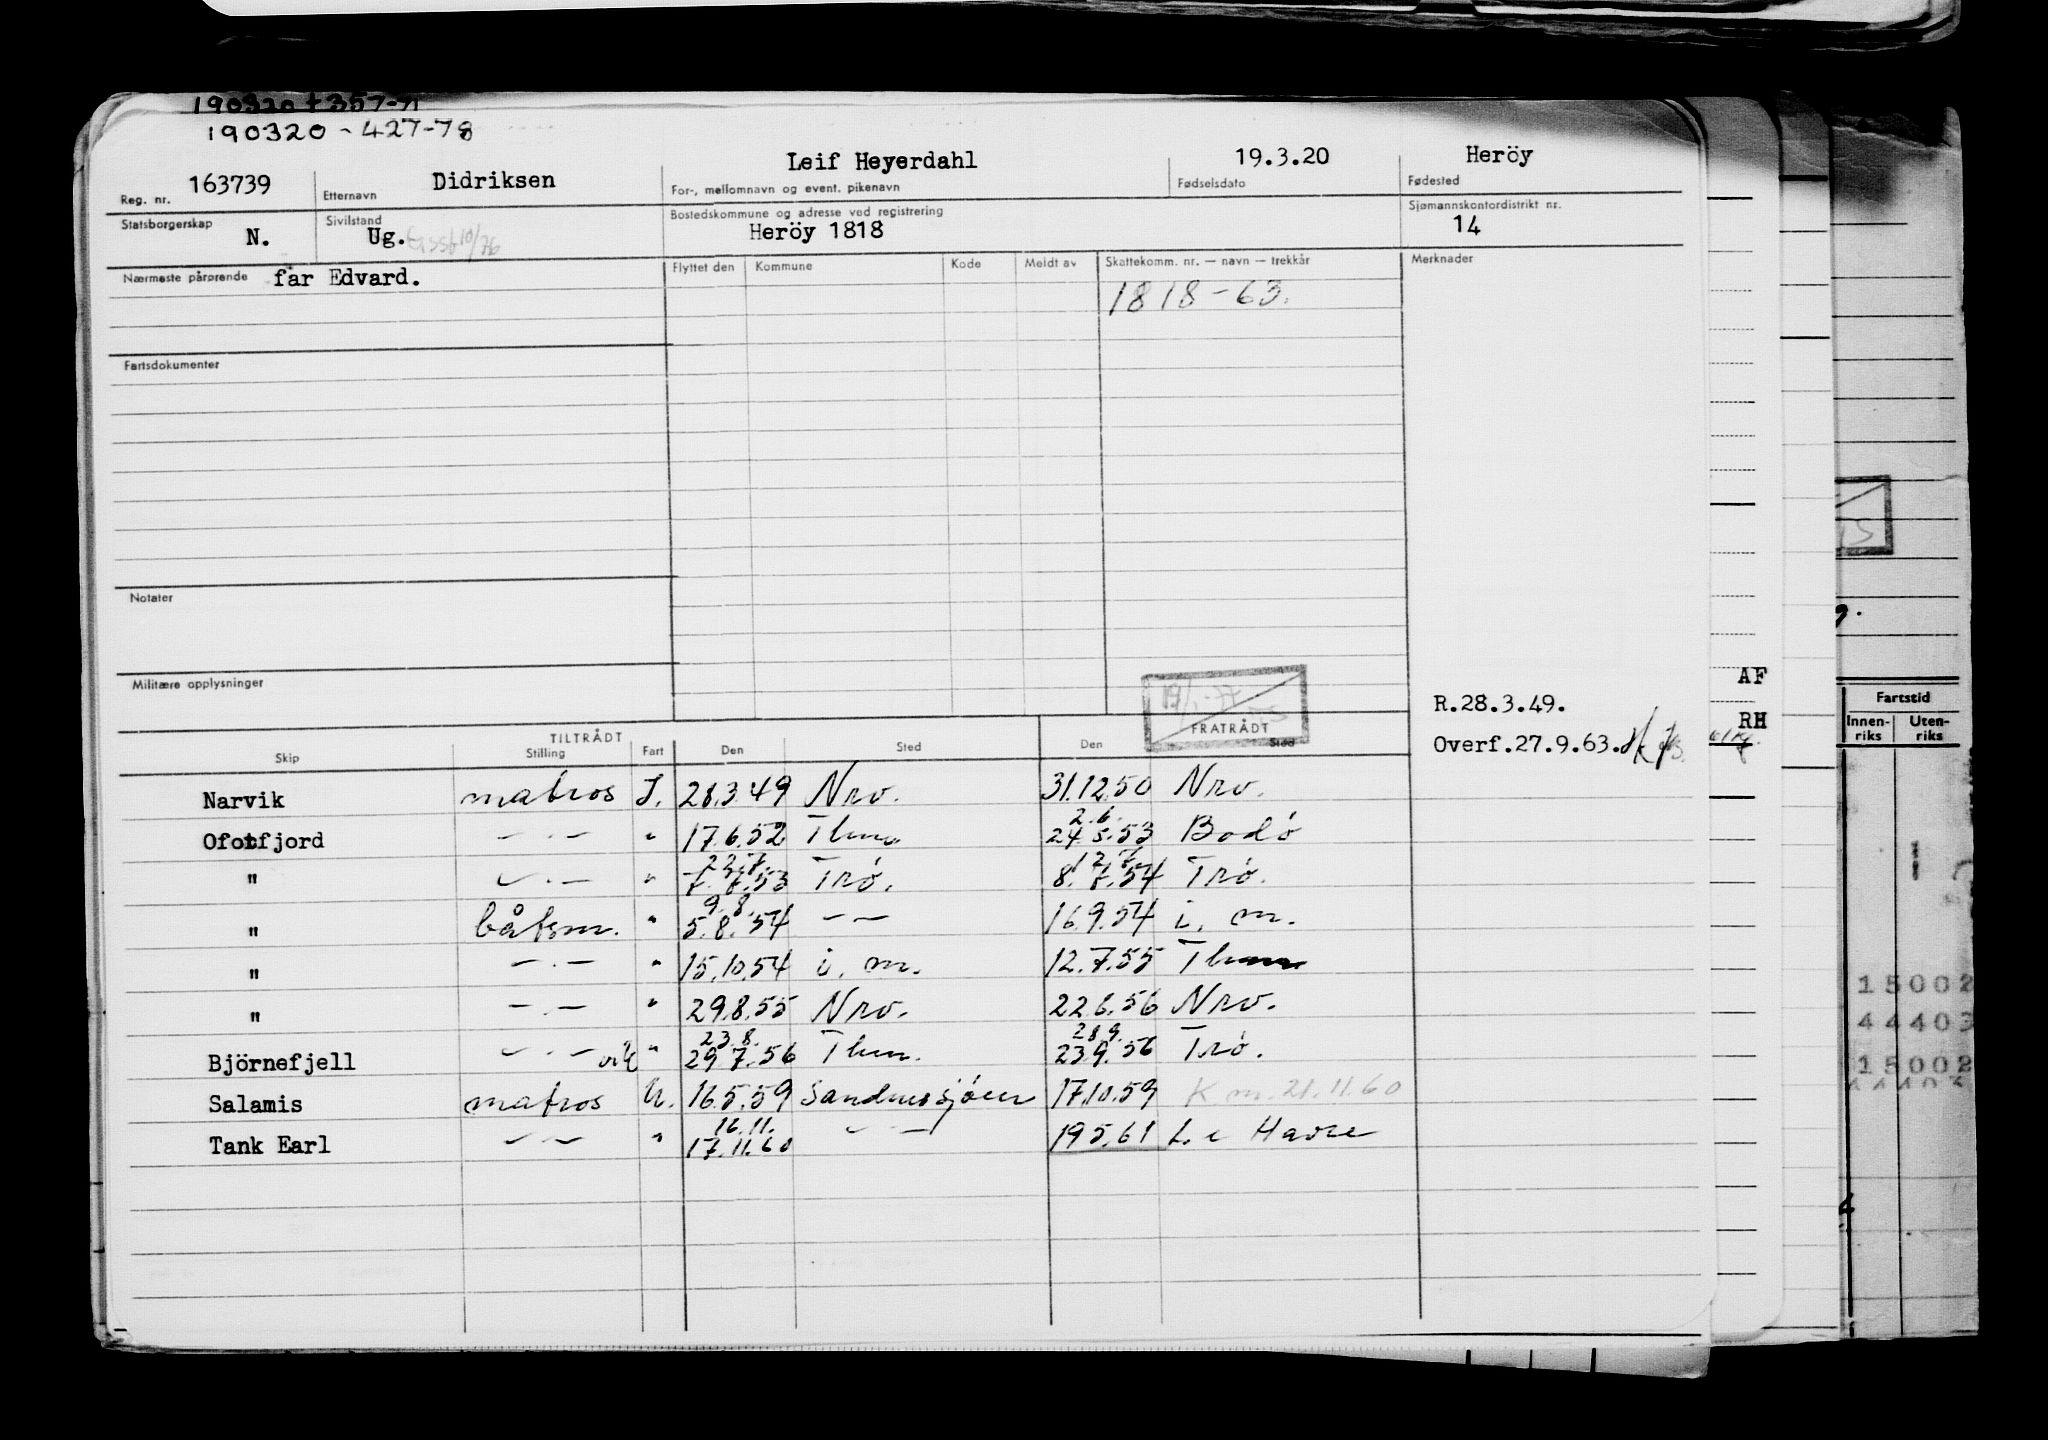 190320 + 357-71
190320 - 427-78
Reg. nr. 163739 Etternavn Didriksen For-, mellomnavn og event. pikenavn Leif Heyerdahl Fødselsdato 19.3.20 Fødested Heröy
Statsborgerskap N. Sivilstand Ug. Bostedskommune og adresse ved registrering Heröy 1818 Sjømannskontordistrikt nr. 14
Nærmeste pårørende far Edvard. Flyttet den Kommune Kode Meldt av Skattekomm. nr. — navn — trekkår Merknader
1818-63.
Fartsdokumenter
Notater
Militære opplysninger
AF
R.28.3.49.
RH
Overf.27.9.63.
Fartstid
Innen-riks Uten-riks
TILTRÅDT FRATRÅDT
Skip Stilling Fart Den Sted Den Sted
Narvik matros I. 28.3.49 Nrv. 31.12.50 Nrv.
2.6.
Ofotfjord — · — " 17.6.52 24.5.53 Bodö
22.7. 12.7.
" — · — " 7.7.53 Trö. 8.7.54 Trö.
9.8.
" båtsm. " 5.8.54 — — 16.9.54 i. m.
" — · — " 15.10.54 i. m. 12.7.55
" — · — " 29.8.55 Nrv. 22.6.56 Nrv.
23.8. 28.9.
Björnefjell — · — " 29.7.56 23.9.56 Trö.
Salamis matros U. 16.5.59 Sandnessjöen 17.10.59 K m. 21.11.60
16.11.
Tank Earl — · — " 17.11.60 — · — 19.5.61 Le Havre
15002
44403
15002